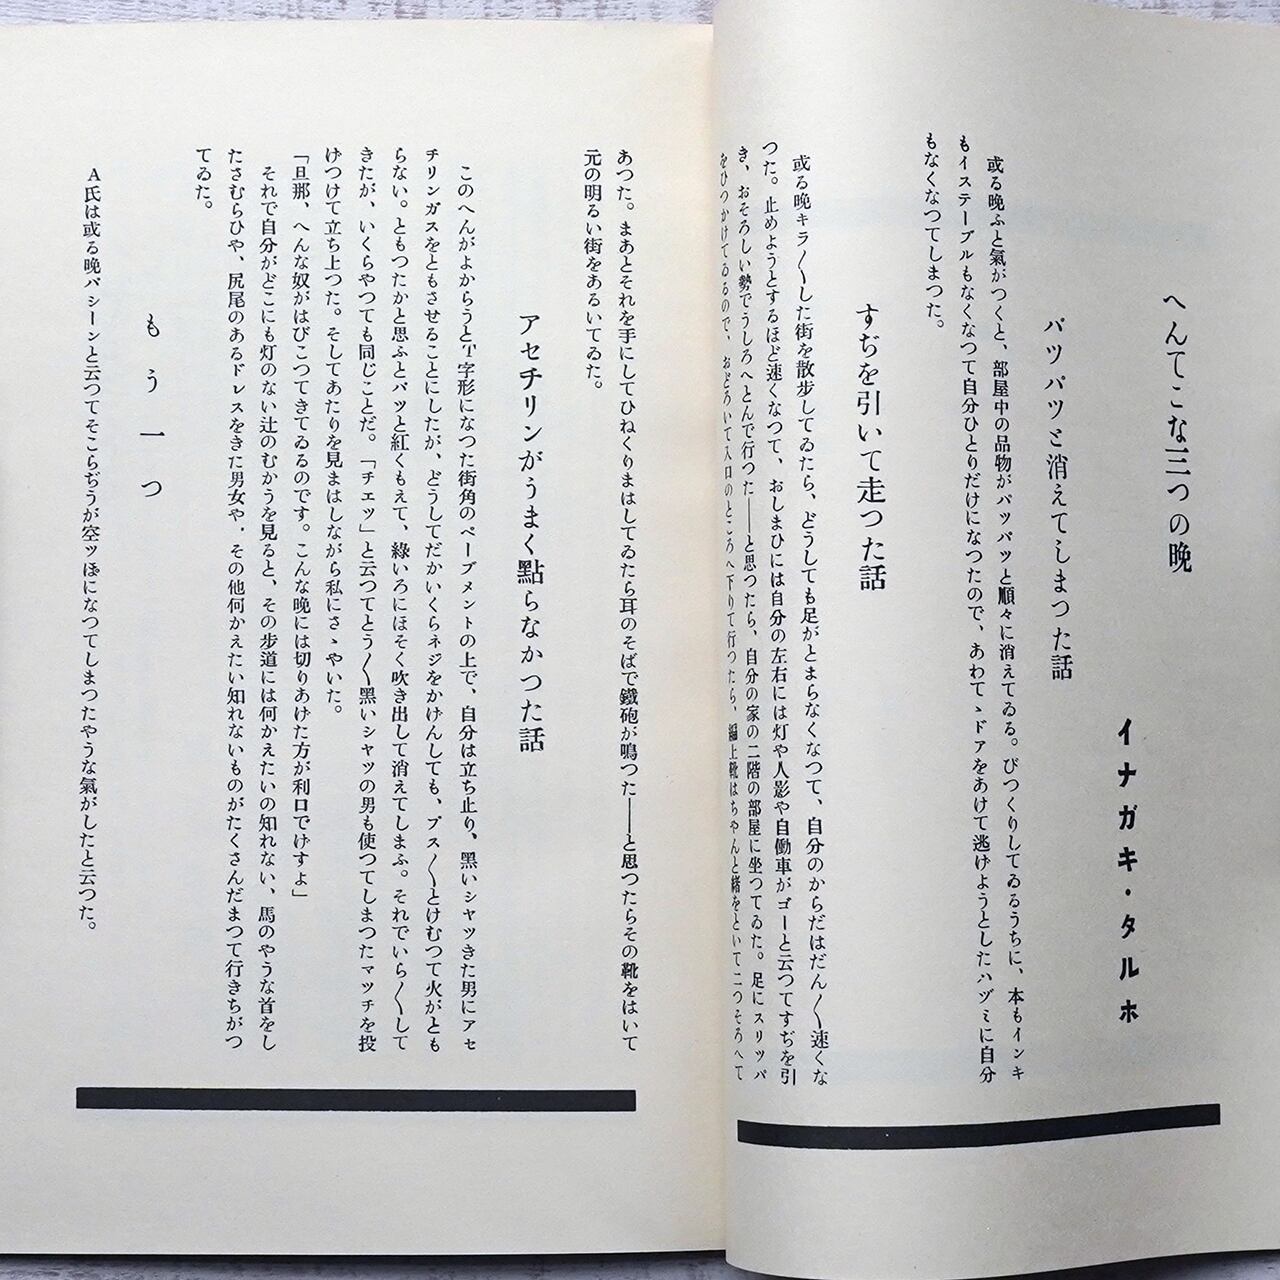 へんてこな三つの晩
イナガキ・タルホ
パツパツと消えてしまつた話
或る晩ふと氣がつくと、部屋中の品物がパッパッと順々に消えてゐる。びつくりしてゐるうちに、本もインキ
もイステーブルもなくなつて自分ひとりだけになつたので、あわてゝドアをあけて逃げようとしたハヅミに自分
もなくなつてしまつた。
すぢを引いて走つた話
或る晩キラ〳〵した街を散步してゐたら、どうしても足がとまらなくなつて、自分のからだはだん〳〵速くな
つた。止めようとするほど速くなつて、おしまひには自分の左右には灯や人影や自働車がゴーと云つてすぢを引
き、おそろしい勢でうしろへとんで行つた――と思つたら、自分の家の二階の部屋に坐つてゐた。足にスリッパ
をひつかけてゐるので、おどろいて入口のところへ下りて行つたら、編上靴はちやんと緒をといて二つそろへて
あつた。まあとそれを手にしてひねくりまはしてゐたら耳のそばで鐵砲が鳴つた――と思つたらその靴をはいて
元の明るい街をあるいてゐた。
アセチリンがうまく點らなかつた話
このへんがよからうとT字形になつた街角のペーブメントの上で、自分は立ち止り、黑いシャツきた男にアセ
チリンガスをともさせることにしたが、どうしてだかいくらネジをかけんしても、プス〳〵とけむつて火がとも
らない。ともつたかと思ふとパッと紅くもえて、綠いろにほそく吹き出して消えてしまふ。それでいら〳〵して
きたが、いくらやつても同じことだ。「チェッ」と云つてとう〳〵黑いシャツの男も使つてしまつたマッチを投
げつけて立ち上つた。そしてあたりを見まはしながら私にさゝやいた。
「旦那、へんな奴がはびこつてきてゐるのです。こんな晩には切りあげた方が利口でけすよ」
それで自分がどこにも灯のない辻のむかうを見ると、その步道には何かえたいの知れない、馬のやうな首をし
たさむらひや、尻尾のあるドレスをきた男女や、その他何かえたい知れないものがたくさんだまつて行きちがつ
てゐた。
もう一つ
A氏は或る晩パシーンと云つてそこらぢうが空ッぽになつてしまつたやうな氣がしたと云つた。